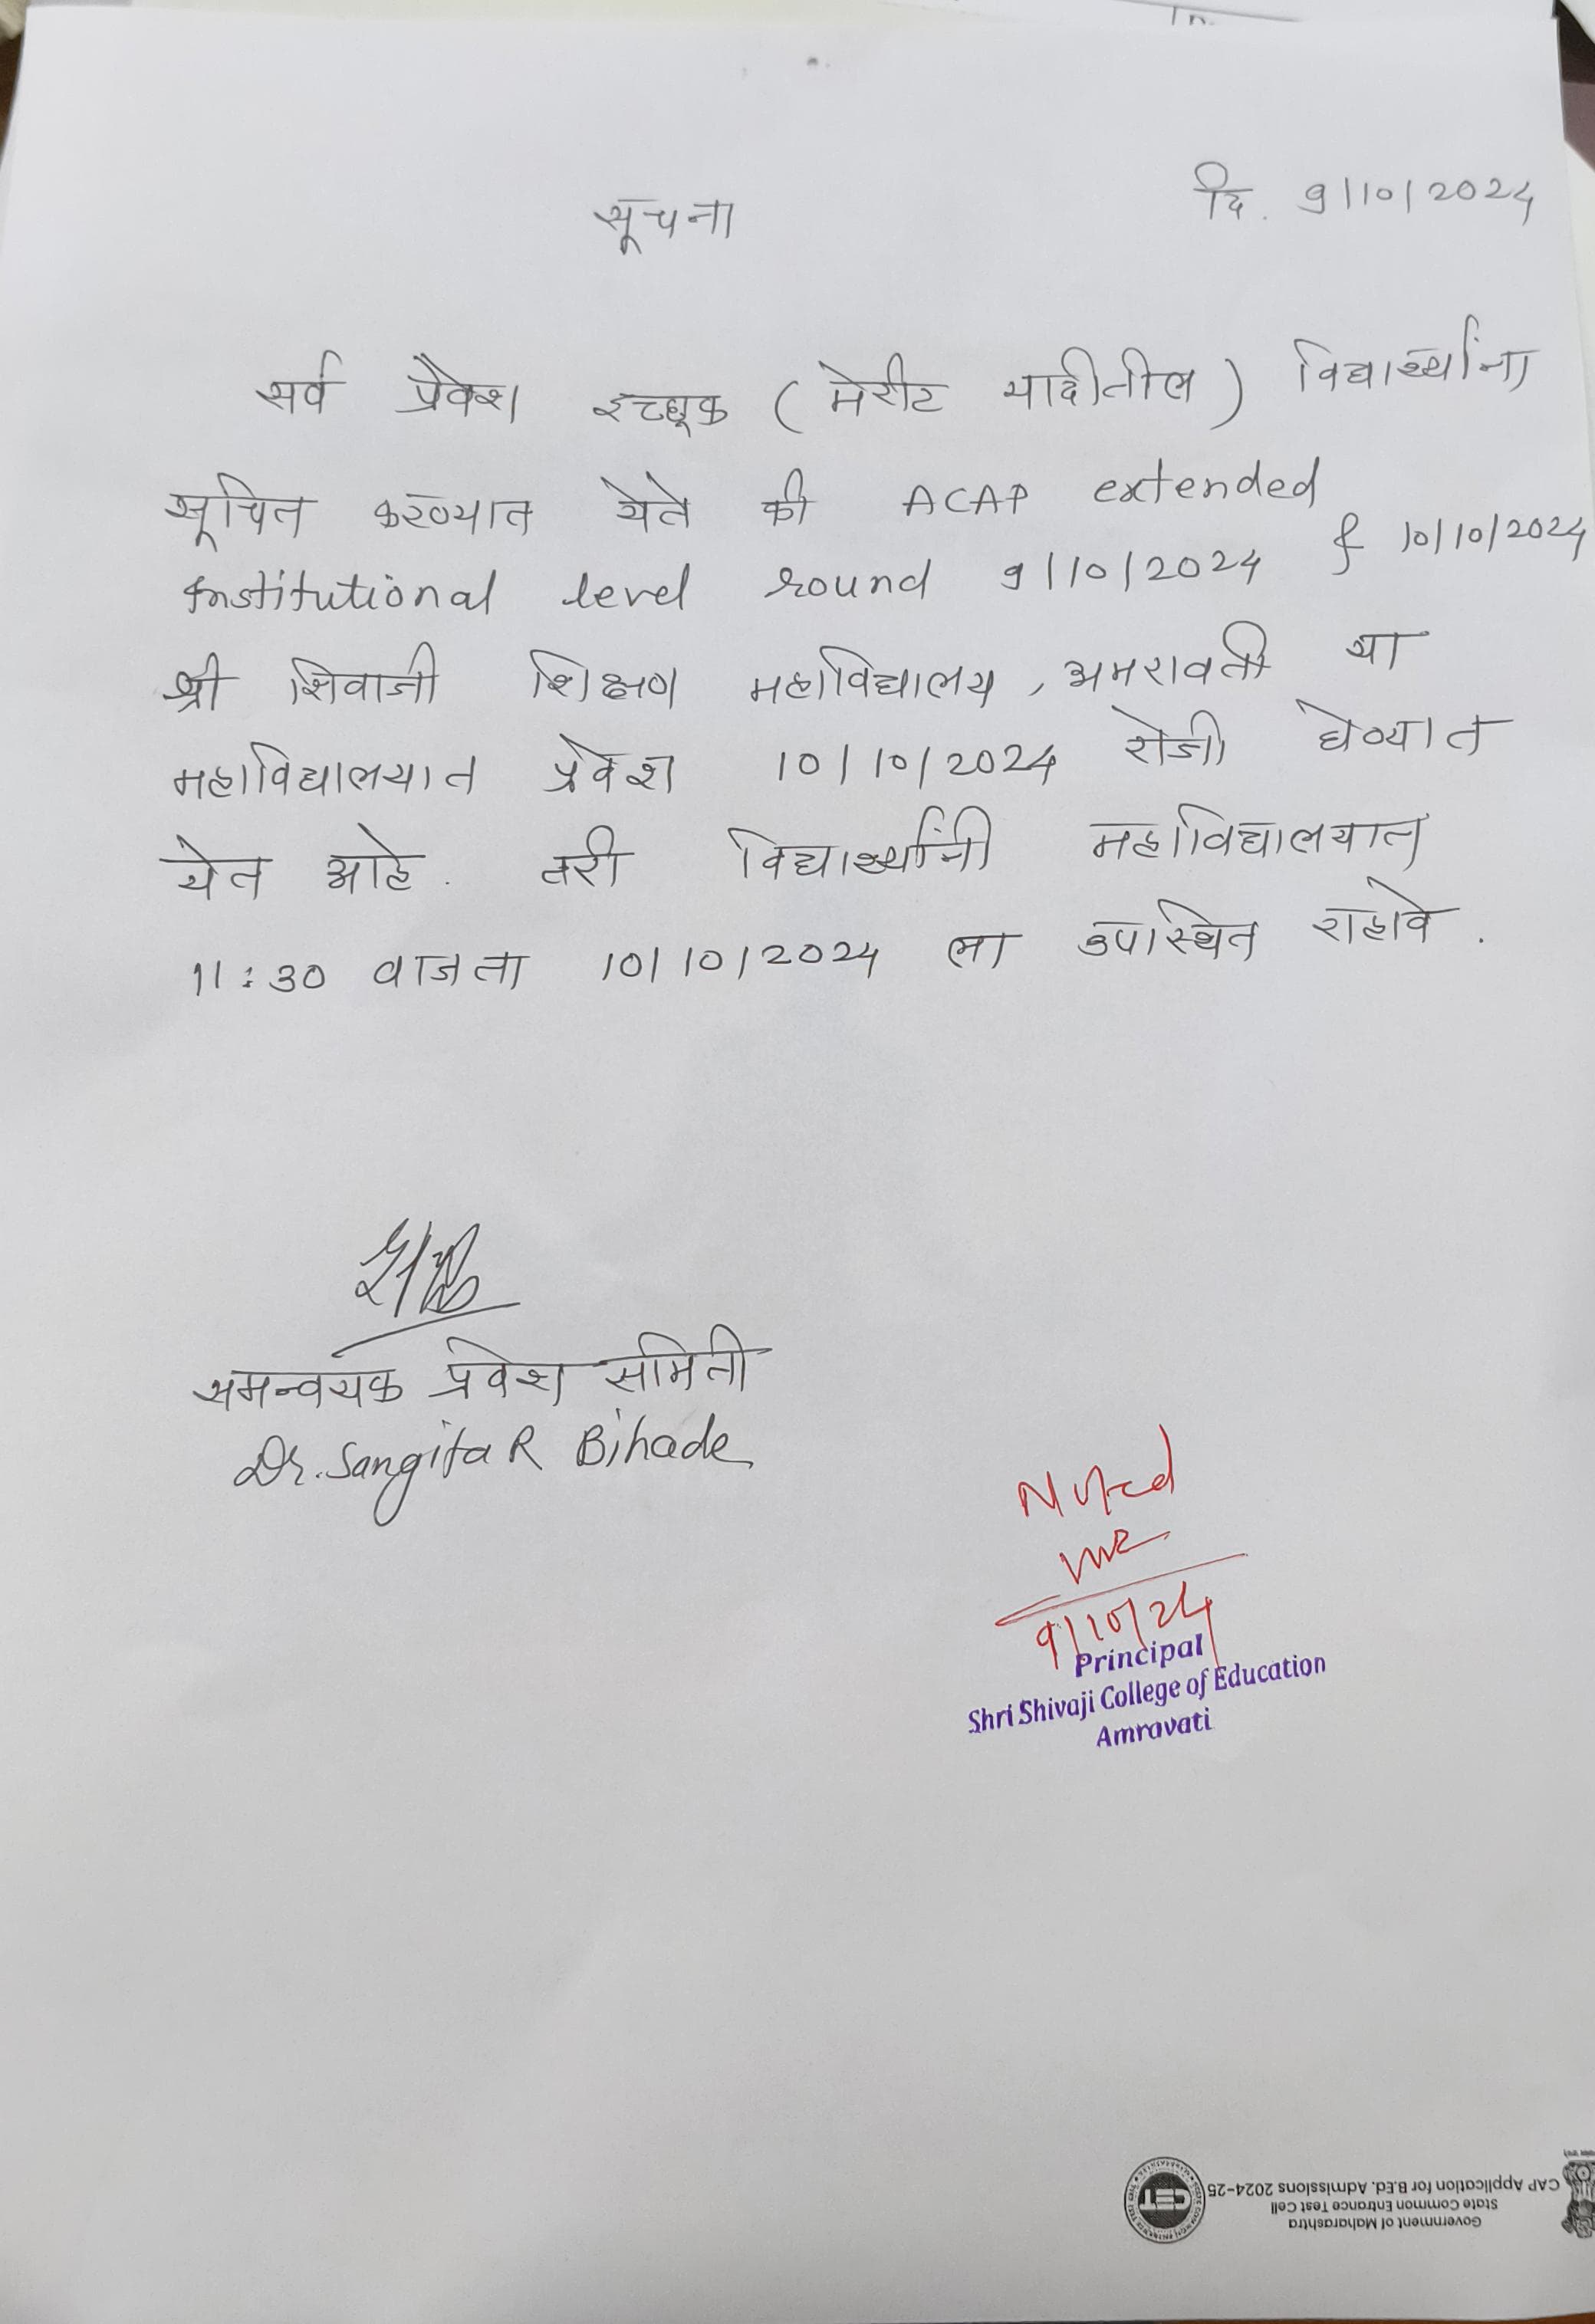 दि. 9/10/2024
सूचना
सर्व प्रवेश इच्छूक (मेरीट यादीतील) विद्यार्थ्यांना
सूचित करण्यात येते की ACAP extended
Institutional level round 9/10/2024 & 10/10/2024
श्री शिवाजी शिक्षण महाविद्यालय, अमरावती या
महाविद्यालयात प्रवेश 10/10/2024 रोजी घेण्यात
येत आहे. तरी विद्यार्थ्यांनी महाविद्यालयात
11:30 वाजता 10/10/2024 ला उपस्थित राहावे.
समन्वयक प्रवेश समिती
Dr. Sangita R Bihade
9/10/24
Principal
Shri Shivaji College of Education
Amravati
Government of Maharashtra
State Common Entrance Test Cell
CAP Application for B.Ed. Admissions 2024-25
CET